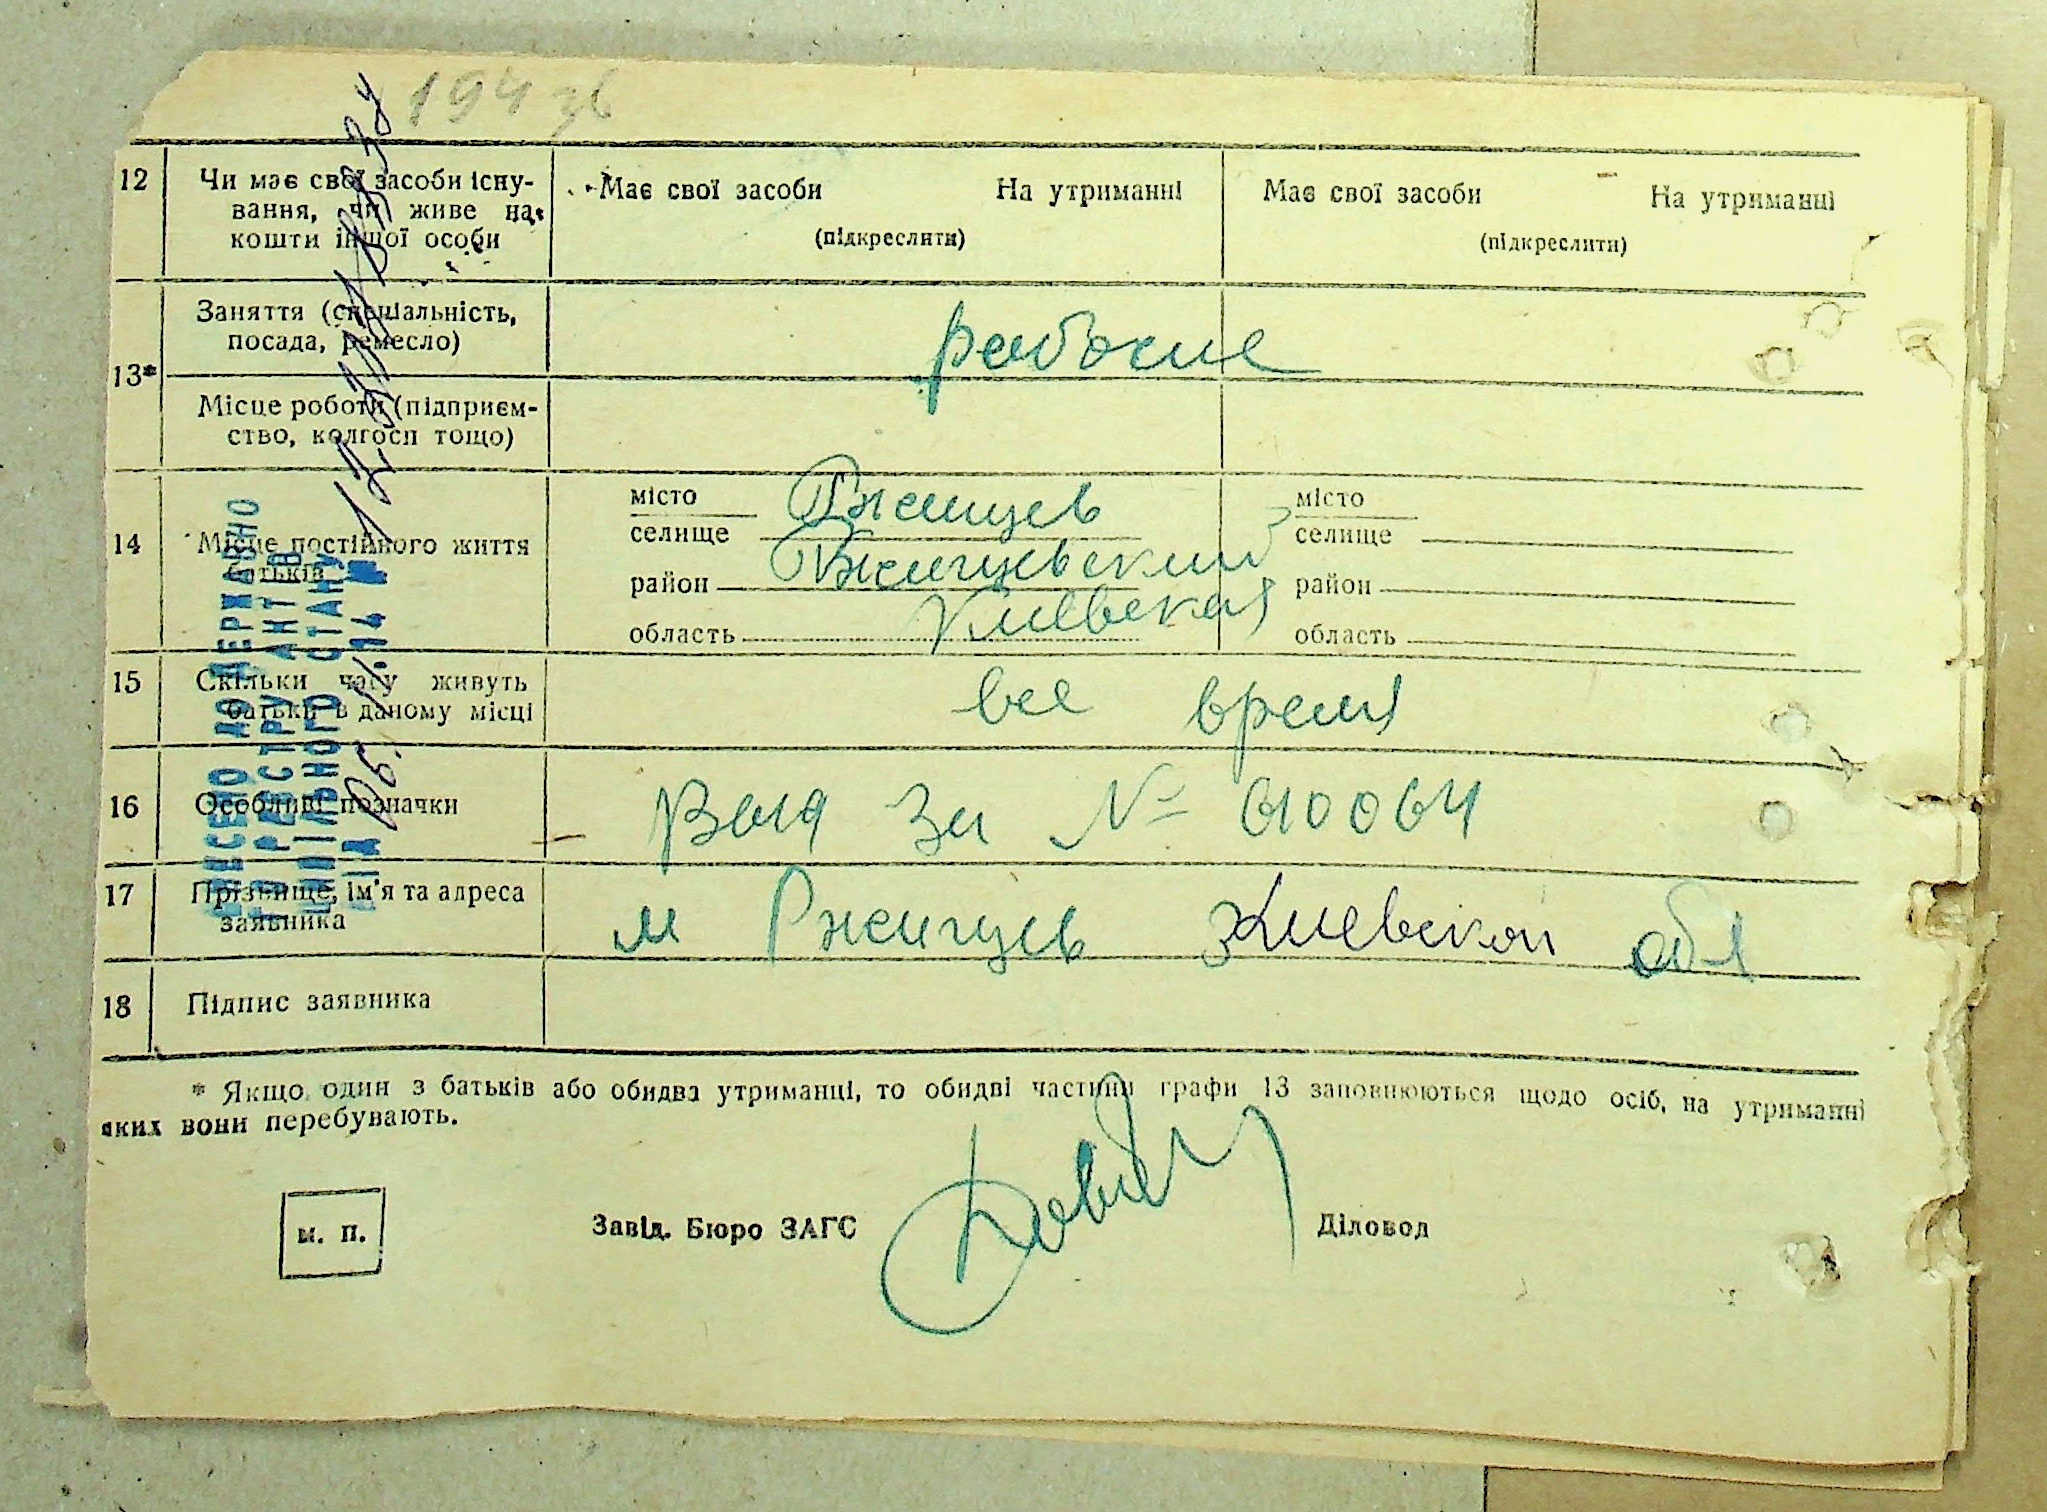 194 зв
12 Чи має свої засоби існу-
вання, чи живе на
кошти іншої особи
Має свої засоби На утриманні
(підкреслити)
Має свої засоби На утриманні
(підкреслити)
13*
Заняття (спеціальність,
посада, ремесло)
рабочие
Місце роботи (підприєм-
ство, колгосп тощо)
14 Місце постійного життя
батьків
місто
селище Ржищев
район Ржищевский
область Киевская
місто
селище
район
область
15 Скільки часу живуть
батьки в даному місці
все время
16 Особливі позначки
Выд за № 010064
17 Прізвище, ім'я та адреса
заявника
м Ржищев Киевской обл
18 Підпис заявника
* Якщо один з батьків або обидва утриманці, то обидві частини графи 13 заповнюються щодо осіб, на утриманні
яких вони перебувають.
м. п.
Завід. Бюро ЗАГС
Діловод
ВНЕСЕНО ДО ДЕРЖАВНО
ГО РЕЄСТРУ АКТІВ
ЦИВІЛЬНОГО СТАНУ